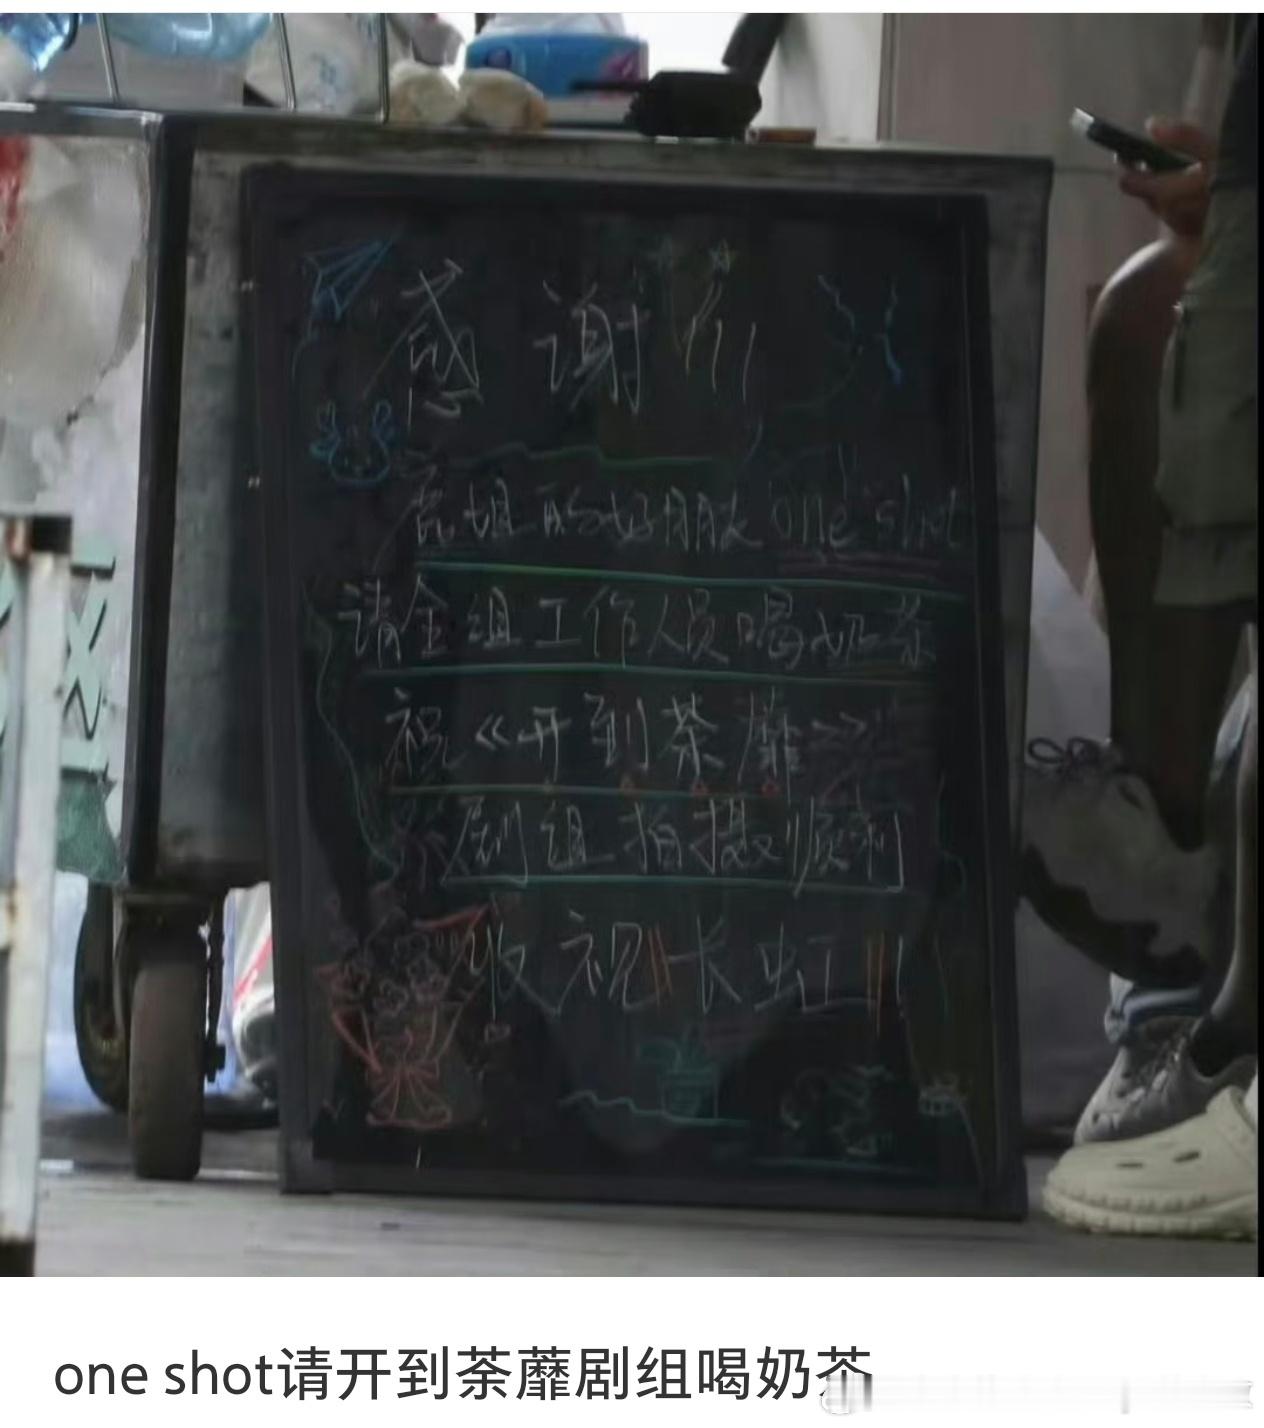 感谢!!!
姐的好朋友 one shot
请全组工作人员喝奶茶
祝《开到荼蘼》
剧组拍摄顺利
收视长虹!!!
one shot请开到荼蘼剧组喝奶茶